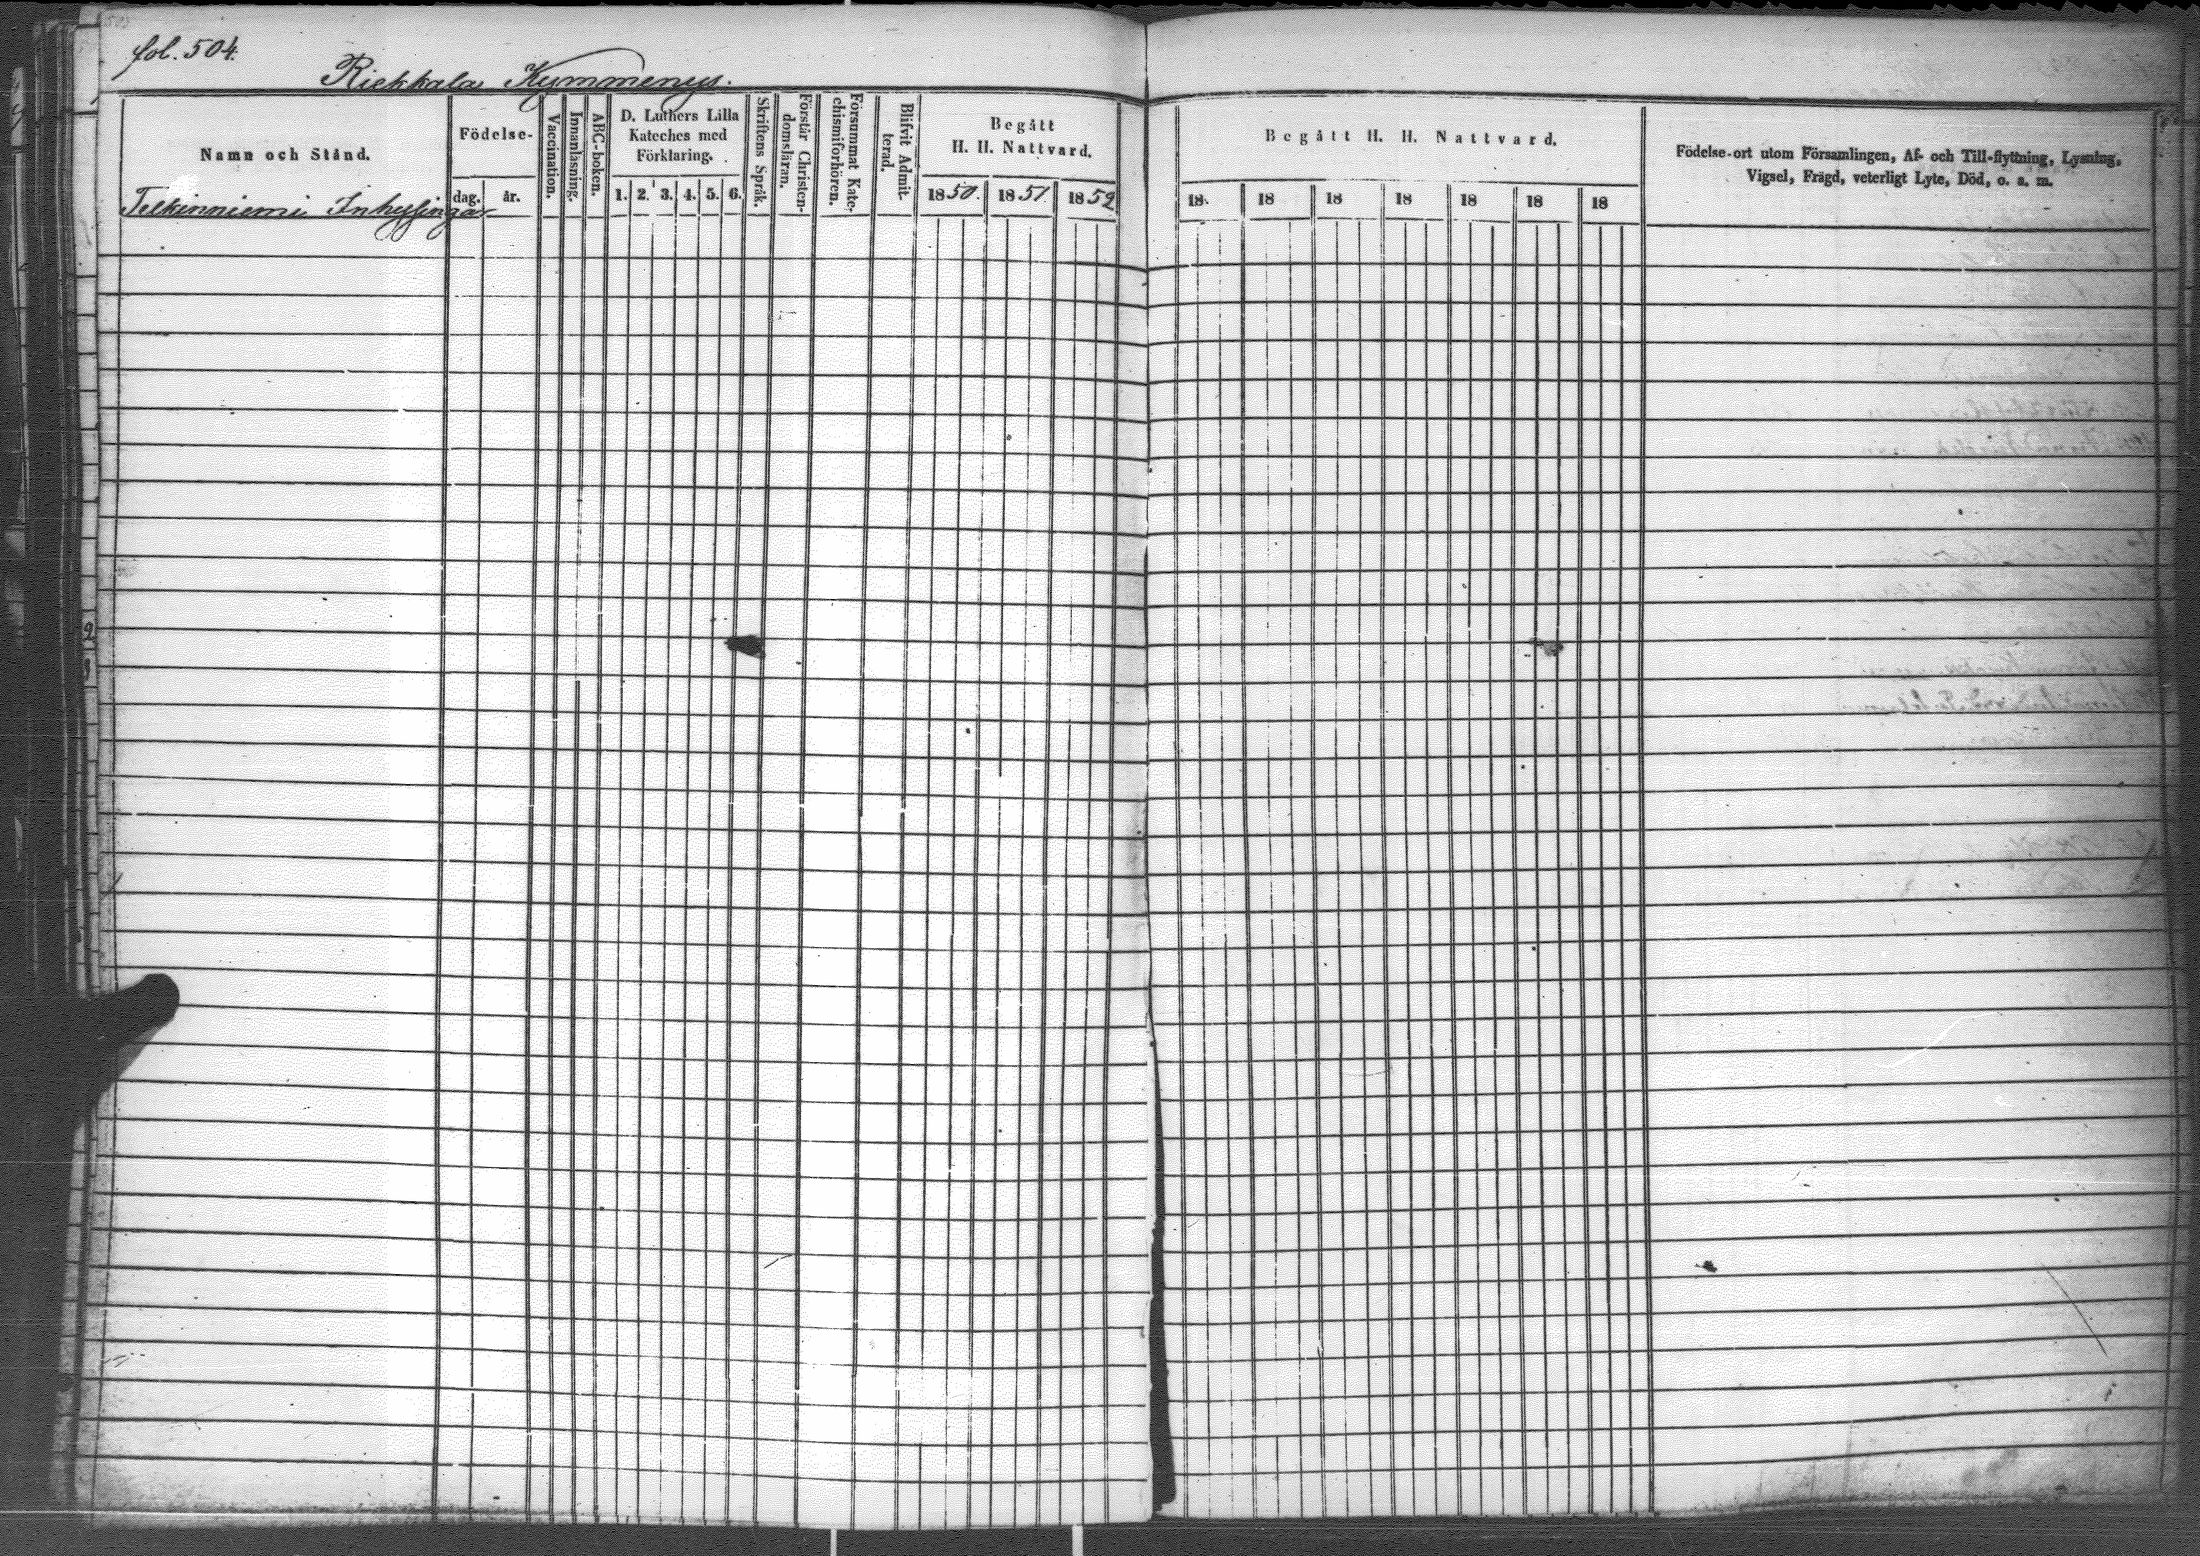 fol. 504.
Riekkala Kymmenys.
Namn och Stånd.
Födelse-
dag. år.
Vaccination.
Innanläsning.
ABC-boken.
D. Luthers Lilla
Kateches med
Förklaring.
1. 2. 3. 4. 5. 6.
Skriftens Språk.
Förstår Christen-
domsläran.
Försummat Kate-
chismiförhören.
Blifvit Admit-
terad.
Begått
H. H. Nattvard.
1850. 1851 1852
Begått H. H. Nattvard.
18 18 18 18 18 18 18
Födelse-ort utom Församlingen, Af- och Till-flyttning, Lysning,
Vigsel, Frägd, veterligt Lyte, Död, o. s. m.
Telkinniemi Inhysingar